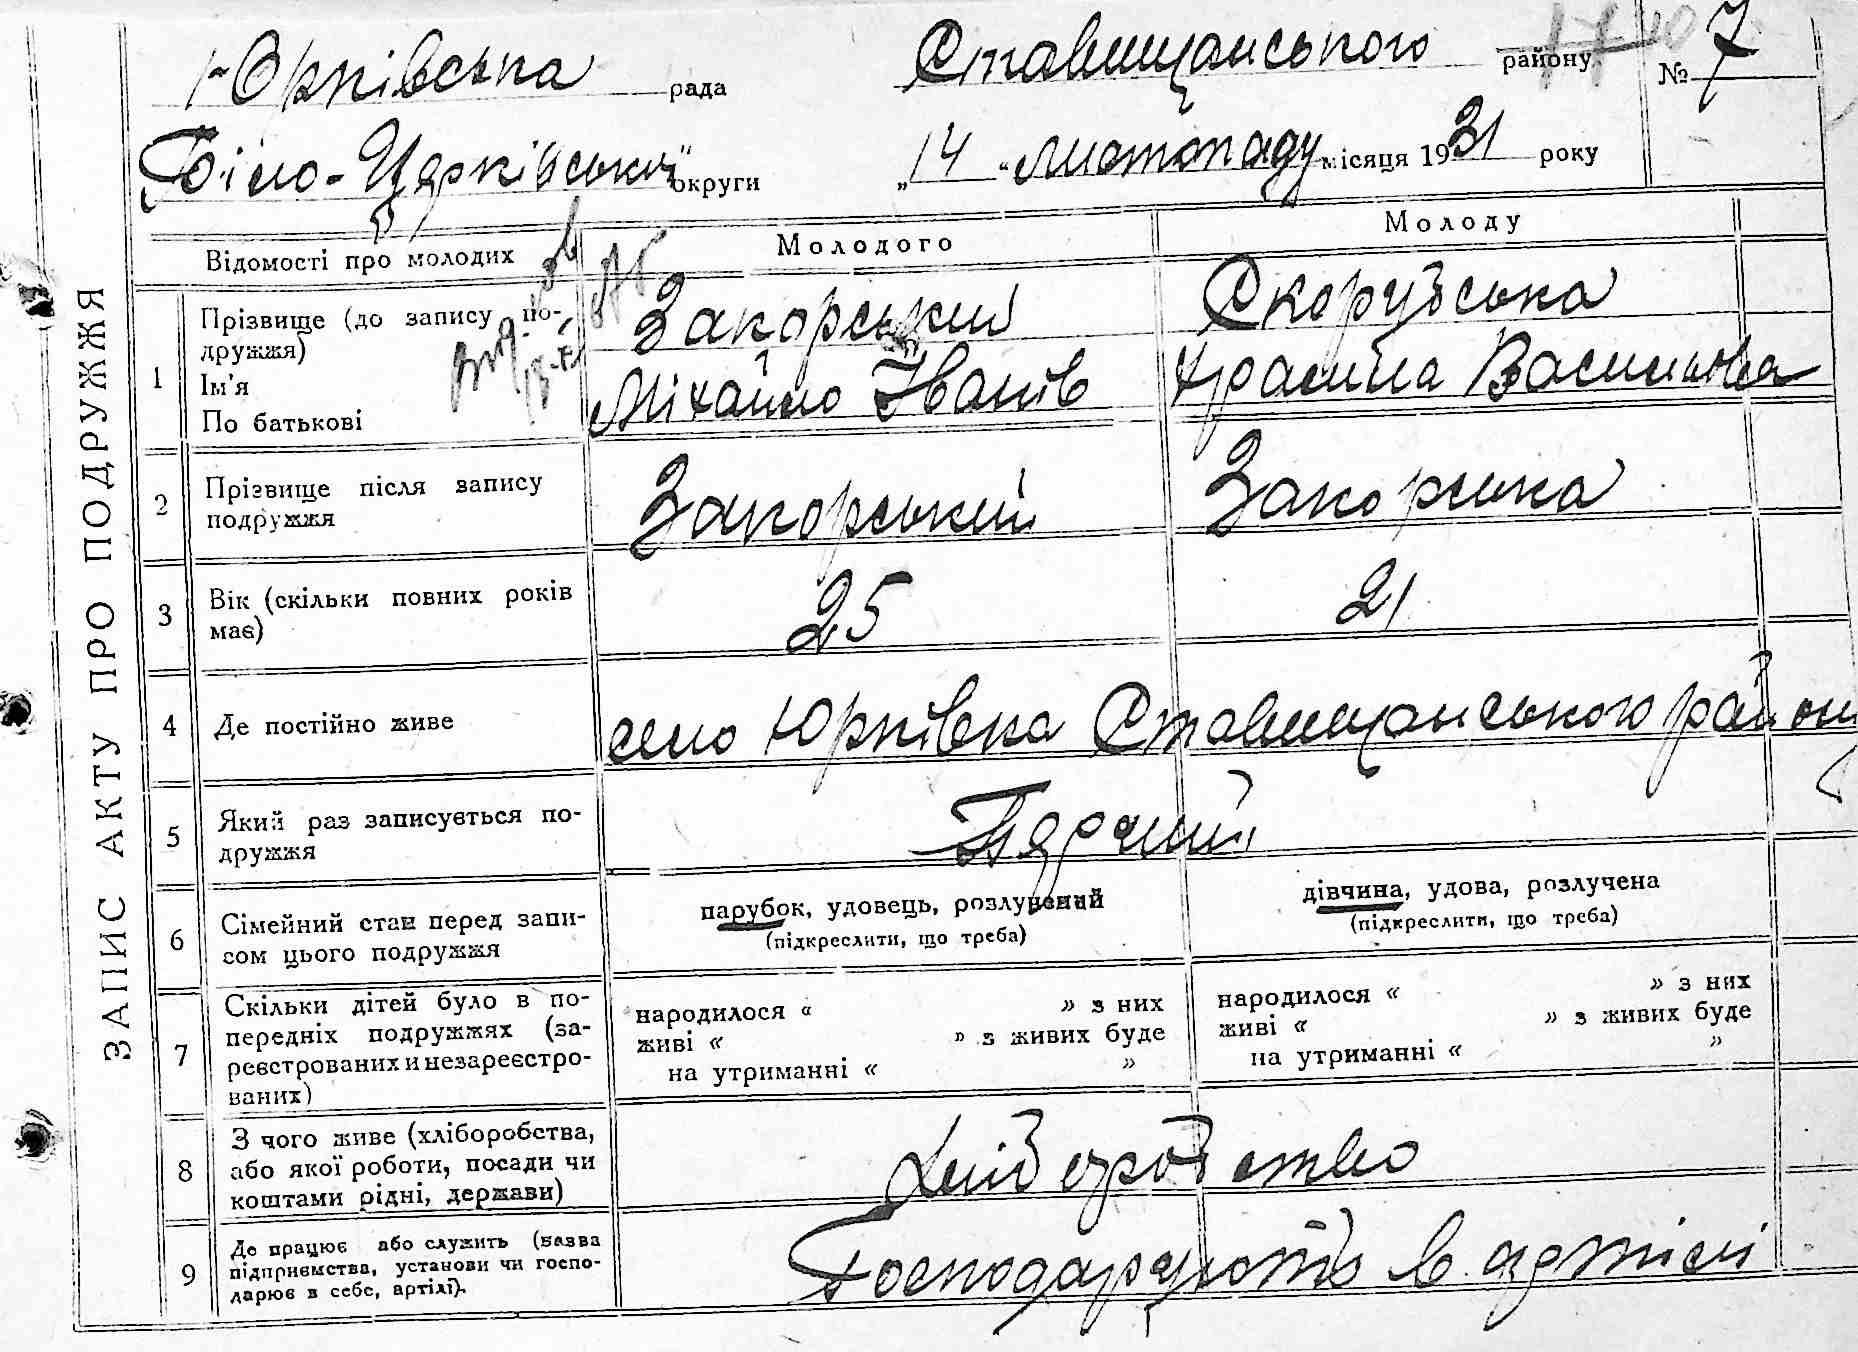 Юрківська рада Ставищанського району № 7
Біло-Церківської округи „14“ листопаду місяця 1931 року
ЗАПИС АКТУ ПРО ПОДРУЖЖЯ
Відомості про молодих Молодого Молоду
1 Прізвище (до запису по-
дружжя)
Ім'я
По батькові
Закорський Скорузська
Міхайло Іванів Василівна
2 Прізвище після запису
подружжя
Закорський Закорська
3 Вік (скільки повних років
має)
25 21
4 Де постійно живе село Юрківка Ставищанського району
5 Який раз записується по-
дружжя
Перший
6 Сімейний стан перед запи-
сом цього подружжя
парубок, удовець, розлучений дівчина, удова, розлучена
(підкреслити, що треба) (підкреслити, що треба)
7 Скільки дітей було в по-
передніх подружжях (за-
реєстрованих и незареєстро-
ваних)
народилося « » з них народилося « » з них
живі « » з живих буде живі « » з живих буде
на утриманні « » на утриманні « »
8 З чого живе (хліборобства,
або якої роботи, посади чи
коштами рідні, держави)
Хліборобство
9 Де працює або служить (назва
підприємства, установи чи госпо-
дарює в себе, артілі).
Господарують в артілі